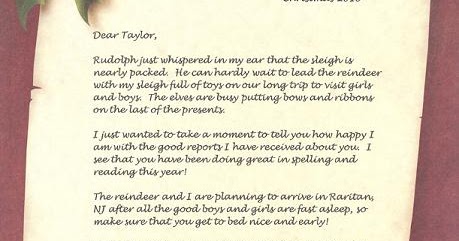 Dear Taylor,
Rudolph just whispered in my ear that the sleigh is
nearly packed. He can hardly wait to lead the reindeer
with my sleigh full of toys on our long trip to visit girls
and boys. The elves are busy putting bows and ribbons
on the last of the presents.
I just wanted to take a moment to tell you how happy I
am with the good reports I have received about you. I
see that you have been doing great in spelling and
reading this year!
The reindeer and I are planning to arrive in Raritan,
NJ after all the good boys and girls are fast asleep, so
make sure that you get to bed nice and early!